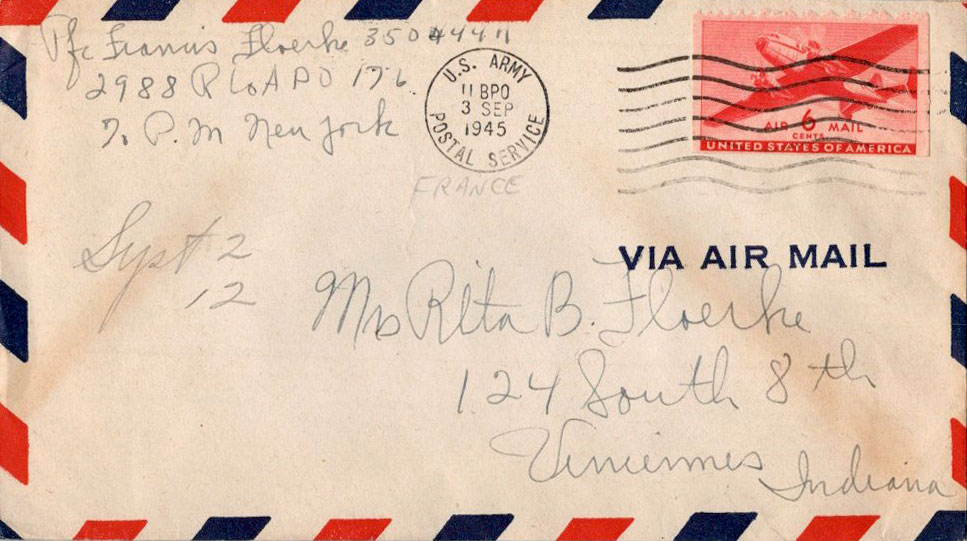 Pfc Francis Floerke 35044411
2988 P Co APO 176
% P.M New York
U.S. ARMY
11 BPO
3 SEP
1945
POSTAL SERVICE
AIR 6 MAIL
CENTS
UNITED STATES OF AMERICA
FRANCE
VIA AIR MAIL
Sept 2
12
Mrs Rita B. Floerke
124 South 8th
Vincennes
Indiana